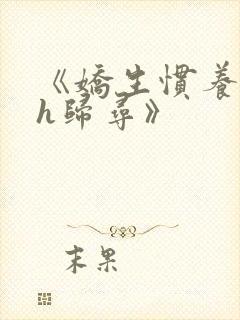 《嬌生慣養
h歸尋》
末果